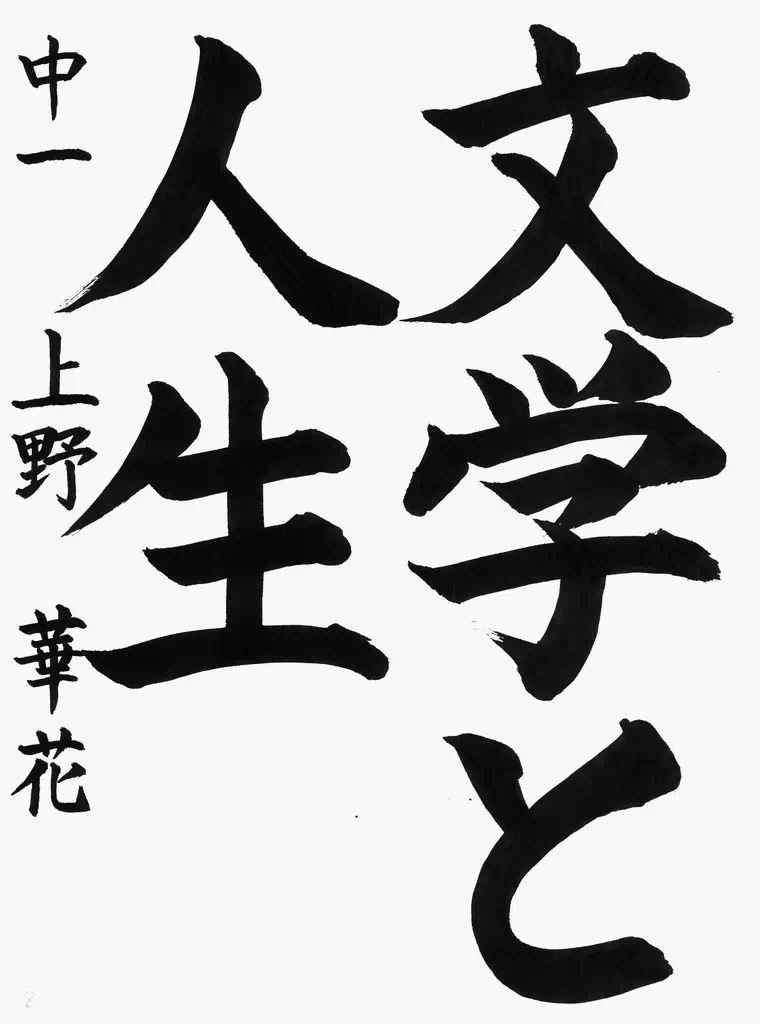 文学と
人生
中一 上野 華花